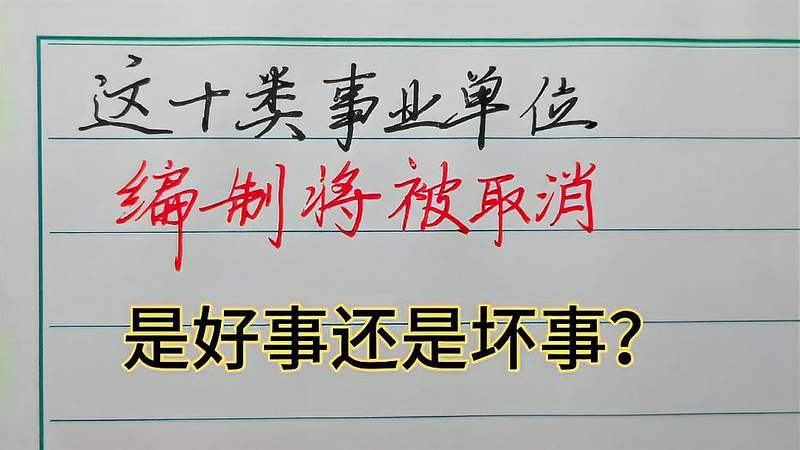 这十类事业单位
编制将被取消
是好事还是坏事?